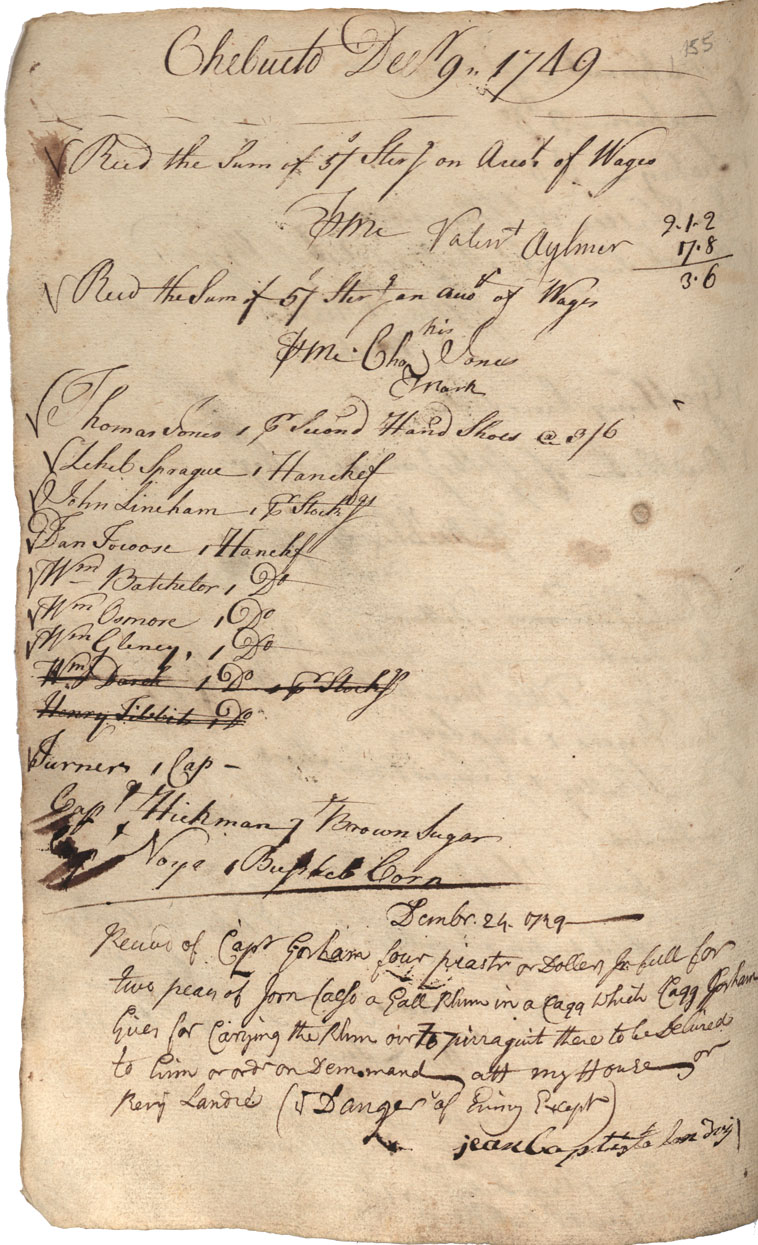 155
Chebucto Decr 9n 1749
Recd the Sum of 5/ Sterg on Accot of Wages
Pr Me Valent Aylmer
2.1.2
17.8
3.6
Recd the Sum of 5/ Sterg on Accot of Wages
his
Pr Me Cha Jones
Mark
Thomas Jones 1 pr Second Hand Shoes @ 3/6
Sprague 1 Hanchef
John Lineham 1 pr Stockgs
Dan Tocoose 1 Hanchf
Wm Batchelor 1 Do
Wm Osmore 1 Do
Wm Gleney, 1 Do
Wm Darck 1 Do 1 pr Stockgs
Henry Tibbits 1 Do
Turner 1 Cap -
Capt Hickman 7 Brown Sugar
Noya 1 Bushel Corn
Dcembr. 24. 1749
Receivd of Capt Gorham four piastr or Dollers In full for
two pears of a Gall Rhum in a Cagg which Cagg Gorham
Gives for Carying the Rhum over to pizzaguit there to be Delivred
to him or ordr on Demmand att my House or
Renj Landre (ye Danger of Enimy Except)
jean Baptiste